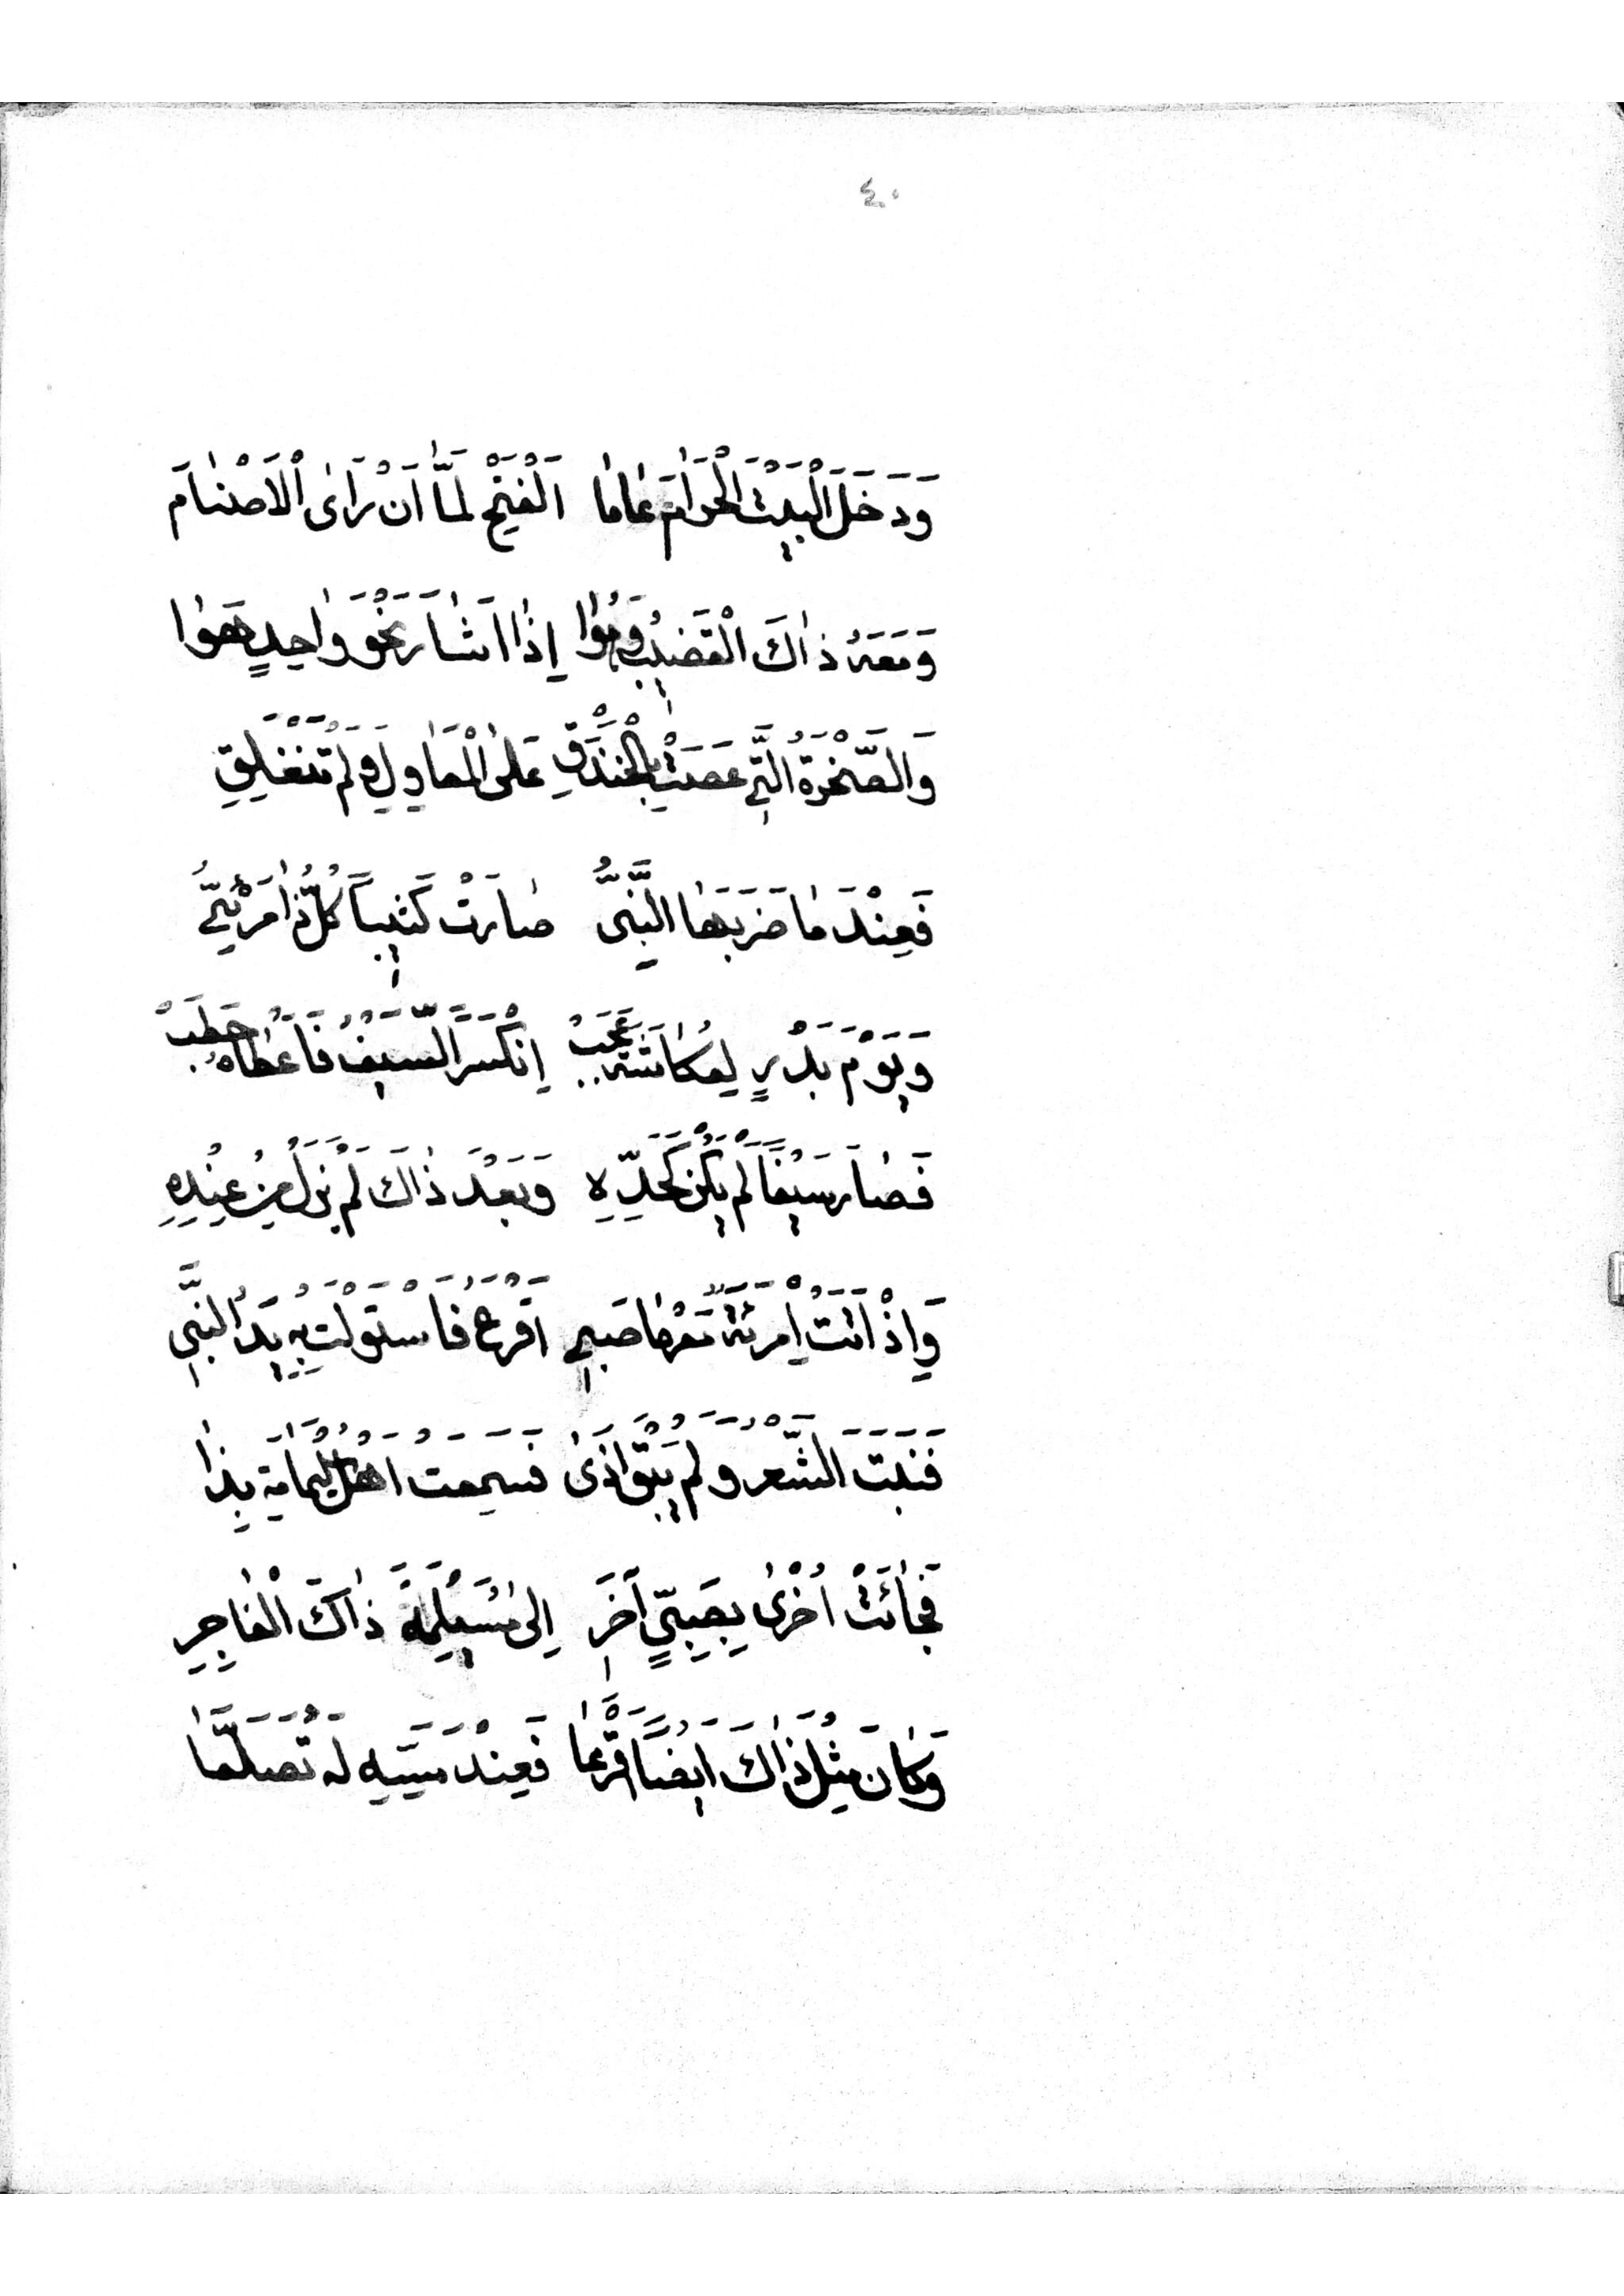 ٤٠
وَدَخَلَ الْبَيْتَ الْحَرَامَ عَامَا الْفَتْحِ لَمَّا اَنْ رَاَىٰ الْاَصْنَامَ
وَمَعَهُ ذَاكَ الْقَضِيبُ اِذَا اَشَارَ نَحْوَ وَاحِدٍ هَوَا
وَالصَّخْرَةُ الَّتِي عَصَتْ بِالْخَنْدَقِ عَلَى الْمَعَاوِلِ وَلَمْ تَنْفَلِقِ
فَعِنْدَمَا ضَرَبَهَا النَّبِيُّ صَارَتْ كَثِيباً كُلُّ ذَا مَرْئِيُّ
وَيَوْمَ بَدْرٍ لِعُكَاشَةَ عَجَبْ اِنْكَسَرَ السَّيْفُ فَاَعْطَاهُ حَطَبْ
فَصَارَ سَيْفًا لَمْ يَكُنْ كَحَدِّهِ وَبَعْدَ ذَاكَ لَمْ يَزَلْ مِنْ عِنْدِهِ
وَاِذْ اَتَتْ اِمْرَئَةٌ مَعْهَا صَبِي اَقْرَعُ فَاسْتَوْلَتْ بِهِ يَدُ النَّبِي
فَنَبَتَ الشَّعْرُ وَلَمْ يَبْقَ اَذَىٰ فَسَمِعَتْ اَهْلُ الْيَمَامَةِ بِذَا
فَجَائَتْ اُخْرَىٰ بِصَبِيٍّ آخَرِ اِلَىٰ مُسَيْلِمَةَ ذَاكَ الْفَاجِرِ
وَكَانَ مِثْلَ ذَاكَ اَيْضًا اَقْرَعَا فَعِنْدَ مَسِّهِ لَهُ تَصَلَّعَا